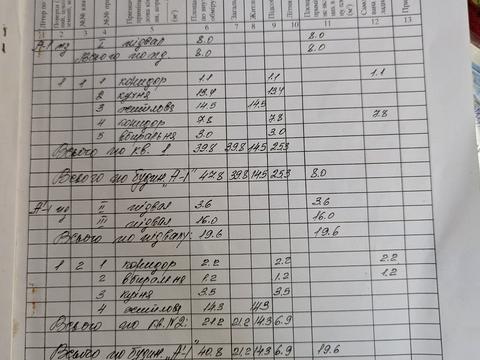 1 2 3 4 5 6 7 8 9 10 11 12 13
А-1 пд I підвал 8.0 8.0
Всього по пд. 8.0 8.0
1 1 1 коридор 1.1 1.1 1.1
2 кухня 13.4 13.4
3 житлова 14.5 14.5
4 коридор 7.8 7.8 7.8
5 вбиральня 3.0 3.0
Всього по кв. 1 39.8 39.8 14.5 25.3
Всього по будин. "А-1" 47.8 39.8 14.5 25.3 8.0
А'-1 пд II підвал 3.6 3.6
III підвал 16.0 16.0
Всього по підвалу: 19.6 19.6
1 2 1 коридор 2.2 2.2 2.2
2 вбиральня 1.2 1.2 1.2
3 кухня 3.5 3.5
4 житлова 14.3 14.3
Всього по кв. №2: 21.2 21.2 14.3 6.9
Всього по будин. "А'-1" 40.8 21.2 14.3 6.9 19.6